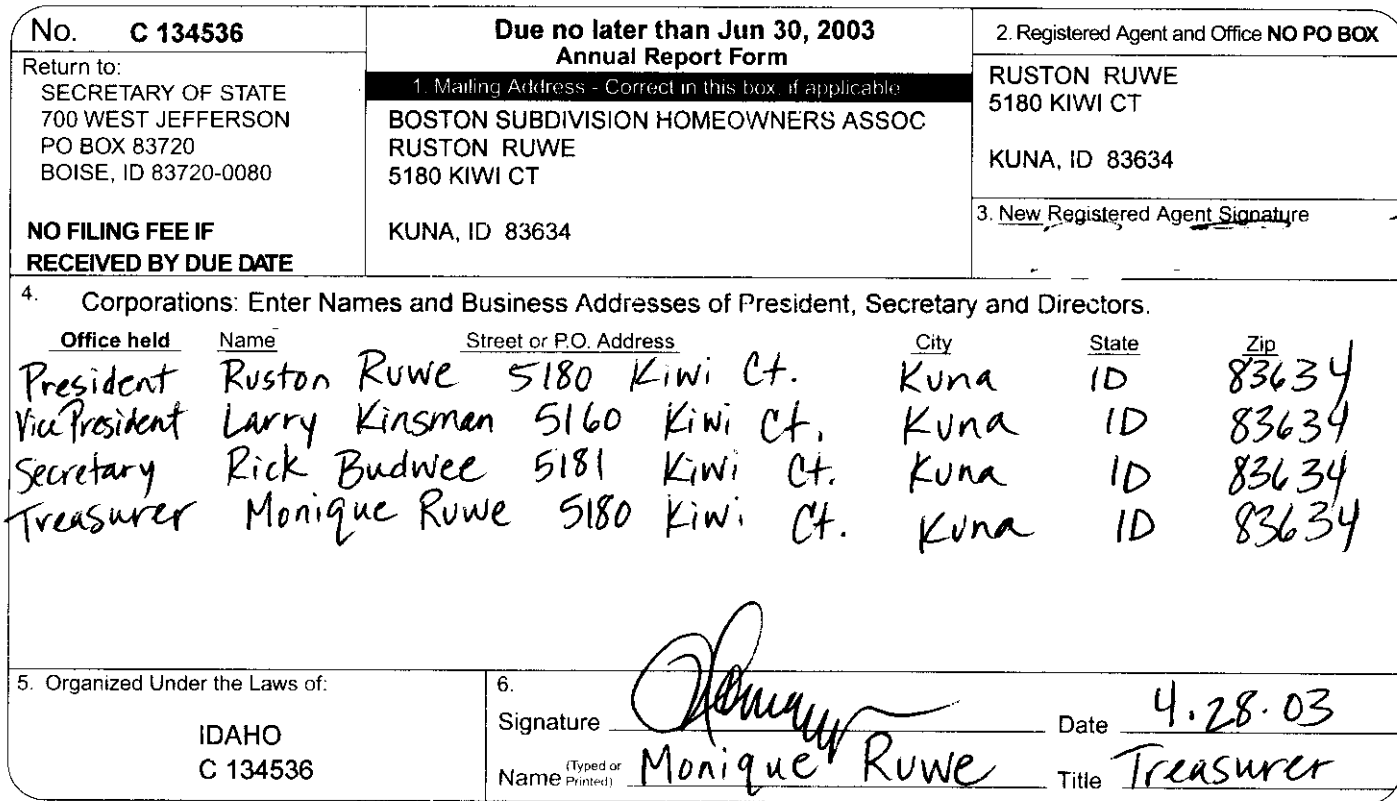 No. C 134536
Return to:
SECRETARY OF STATE
700 WEST JEFFERSON
PO BOX 83720
BOISE, ID 83720-0080
NO FILING FEE IF
RECEIVED BY DUE DATE
Due no later than Jun 30, 2003
Annual Report Form
1. Mailing Address - Correct in this box, if applicable
BOSTON SUBDIVISION HOMEOWNERS ASSOC
RUSTON RUWE
5180 KIWI CT
KUNA, ID 83634
2. Registered Agent and Office NO PO BOX
RUSTON RUWE
5180 KIWI CT
KUNA, ID 83634
3. New Registered Agent Signature
4. Corporations: Enter Names and Business Addresses of President, Secretary and Directors.
Office held Name Street or P.O. Address City State Zip
President Ruston Ruwe 5180 Kiwi Ct. Kuna ID 83634
Vice President Larry Kinsman 5160 Kiwi Ct. Kuna ID 83634
Secretary Rick Budwee 5181 Kiwi Ct. Kuna ID 83634
Treasurer Monique Ruwe 5180 Kiwi Ct. Kuna ID 83634
5. Organized Under the Laws of:
IDAHO
C 134536
6.
Signature Date 4.28.03
Name (Typed or Printed) Monique Ruwe Title Treasurer